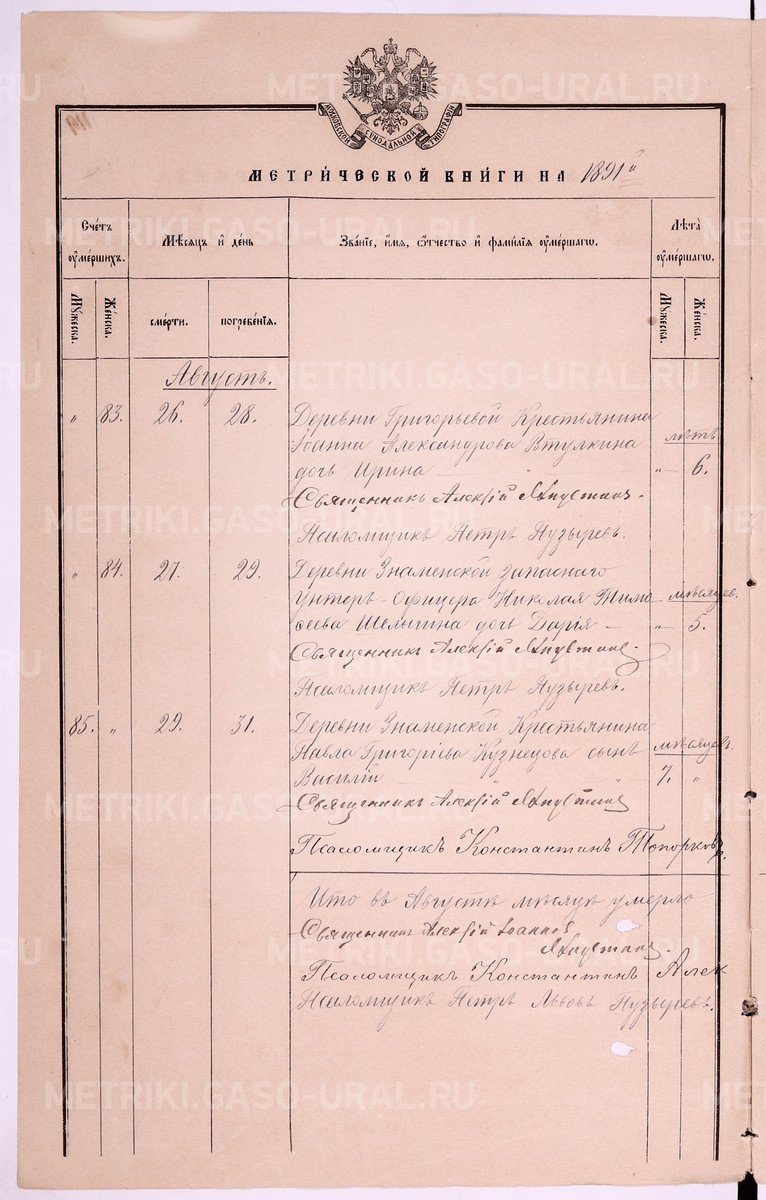 МОСКОВСКОЙ СѴНОДАЛЬНОЙ ТИПОГРАФІИ
МЕТРИ́ЧЕСКОЙ КНИ́ГИ НА 1891й
Счётъ оумершихъ.
Мѣсяцъ и день
Званіе, имя, отчество и фамилія оумершагѡ.
Лѣта оумершагѡ.
Мужеска.
Женска.
смерти.
погребенія.
Мужеска.
Женска.
Августъ.
" 83. 26. 28. Деревни Григорьевой Крестьянина
Іоанна Александрова Втулкина лѣтъ
дочь Ирина — " " — 6.
Священникъ Алексій
Псаломщикъ Петръ Пузыревъ.
" 84. 27. 29. Деревни Знаменской запаснаго
Унтеръ-Офицера Николая Тимо мѣсяцев.
ѳеева Шелыгина дочь Дарія — " — 5.
Священникъ Алексій
Псаломщикъ Петръ Пузыревъ.
85. " 29. 31. Деревни Знаменской Крестьянина
Павла Григоріева Кузнецова сынъ мѣсяцевъ.
Василій — " " 7. "
Священникъ Алексій
Псаломщикъ Константинъ Топорковъ
Что въ Августѣ мѣсяцѣ умерло
Священникъ Алексій Іоаннов
Псаломщикъ Константинъ Алек
Псаломщикъ Петръ Львовъ Пузыревъ.
METRIKI.GASO-URAL.RU